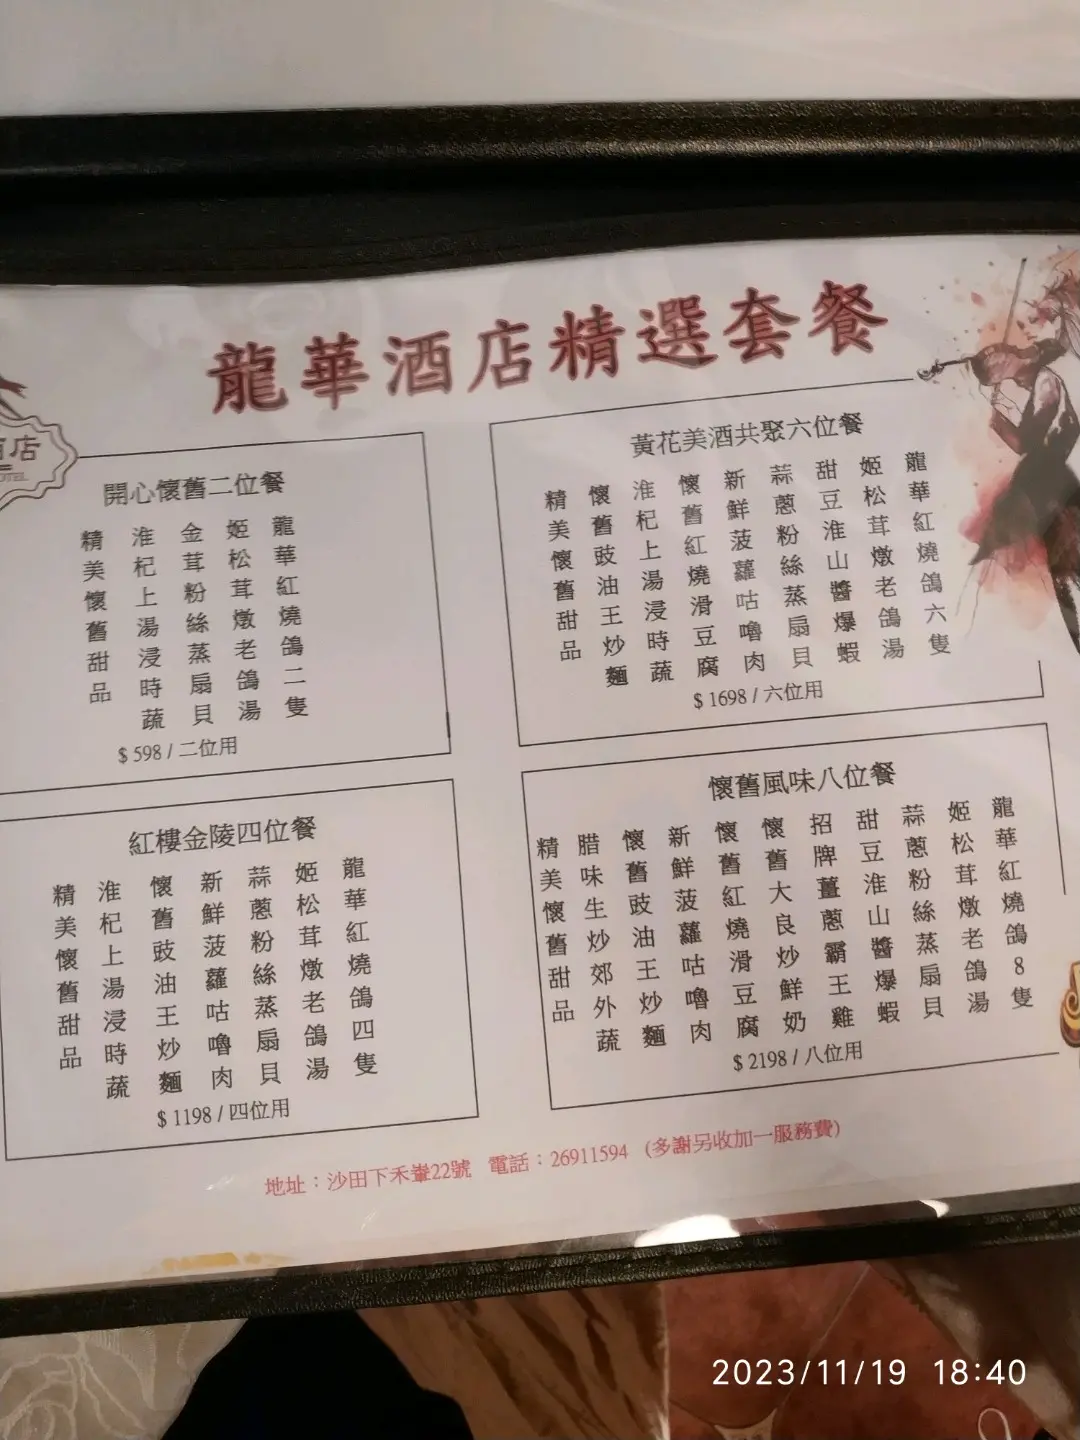 龍華酒店精選套餐
酒店
OTEL
開心懷舊二位餐
龍華紅燒鴿二隻
姬松茸燉老鴿湯
金茸粉絲蒸扇貝
淮杞上湯浸時蔬
精美懷舊甜品
$598/二位用
黃花美酒共聚六位餐
龍華紅燒鴿六隻
姬松茸燉老鴿湯
甜豆淮山醬爆蝦
蒜蔥粉絲蒸扇貝
新鮮菠蘿咕嚕肉
懷舊紅燒滑豆腐
淮杞上湯浸時蔬
懷舊豉油王炒麵
精美懷舊甜品
$1698/六位用
紅樓金陵四位餐
龍華紅燒鴿四隻
姬松茸燉老鴿湯
蒜蔥粉絲蒸扇貝
新鮮菠蘿咕嚕肉
懷舊豉油王炒麵
淮杞上湯浸時蔬
精美懷舊甜品
$1198/四位用
懷舊風味八位餐
龍華紅燒鴿8隻
姬松茸燉老鴿湯
蒜蔥粉絲蒸扇貝
甜豆淮山醬爆蝦
招牌薑蔥霸王雞
懷舊大良炒鮮奶
懷舊紅燒滑豆腐
新鮮菠蘿咕嚕肉
懷舊豉油王炒麵
腊味生炒郊外蔬
精美懷舊甜品
$2198/八位用
地址：沙田下禾輋22號 電話：26911594 (多謝另收加一服務費)
2023/11/19 18:40